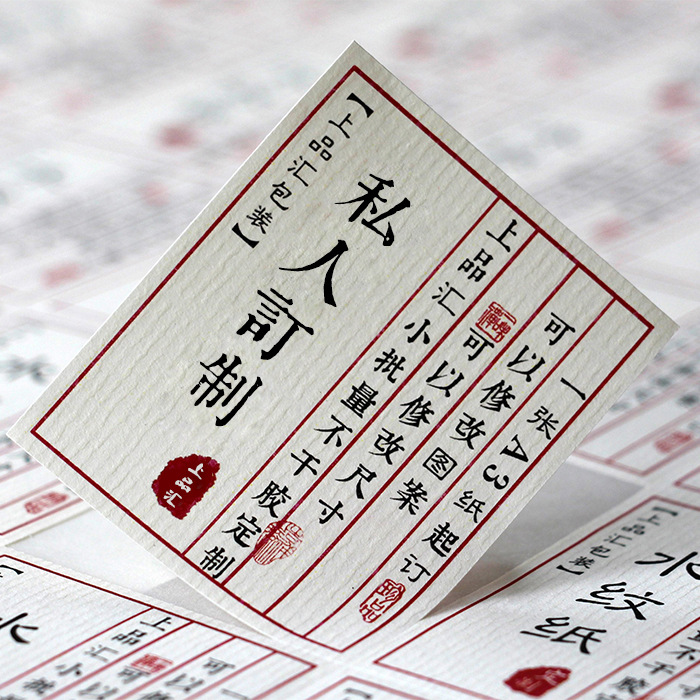 【上品汇包装】
私人訂制
上品汇
上品汇小批量不干胶定制
可以修改尺寸
可以修改图案
一张A3纸起订
【上品汇包装】
水纹纸
上品汇小批
可以
可以
水